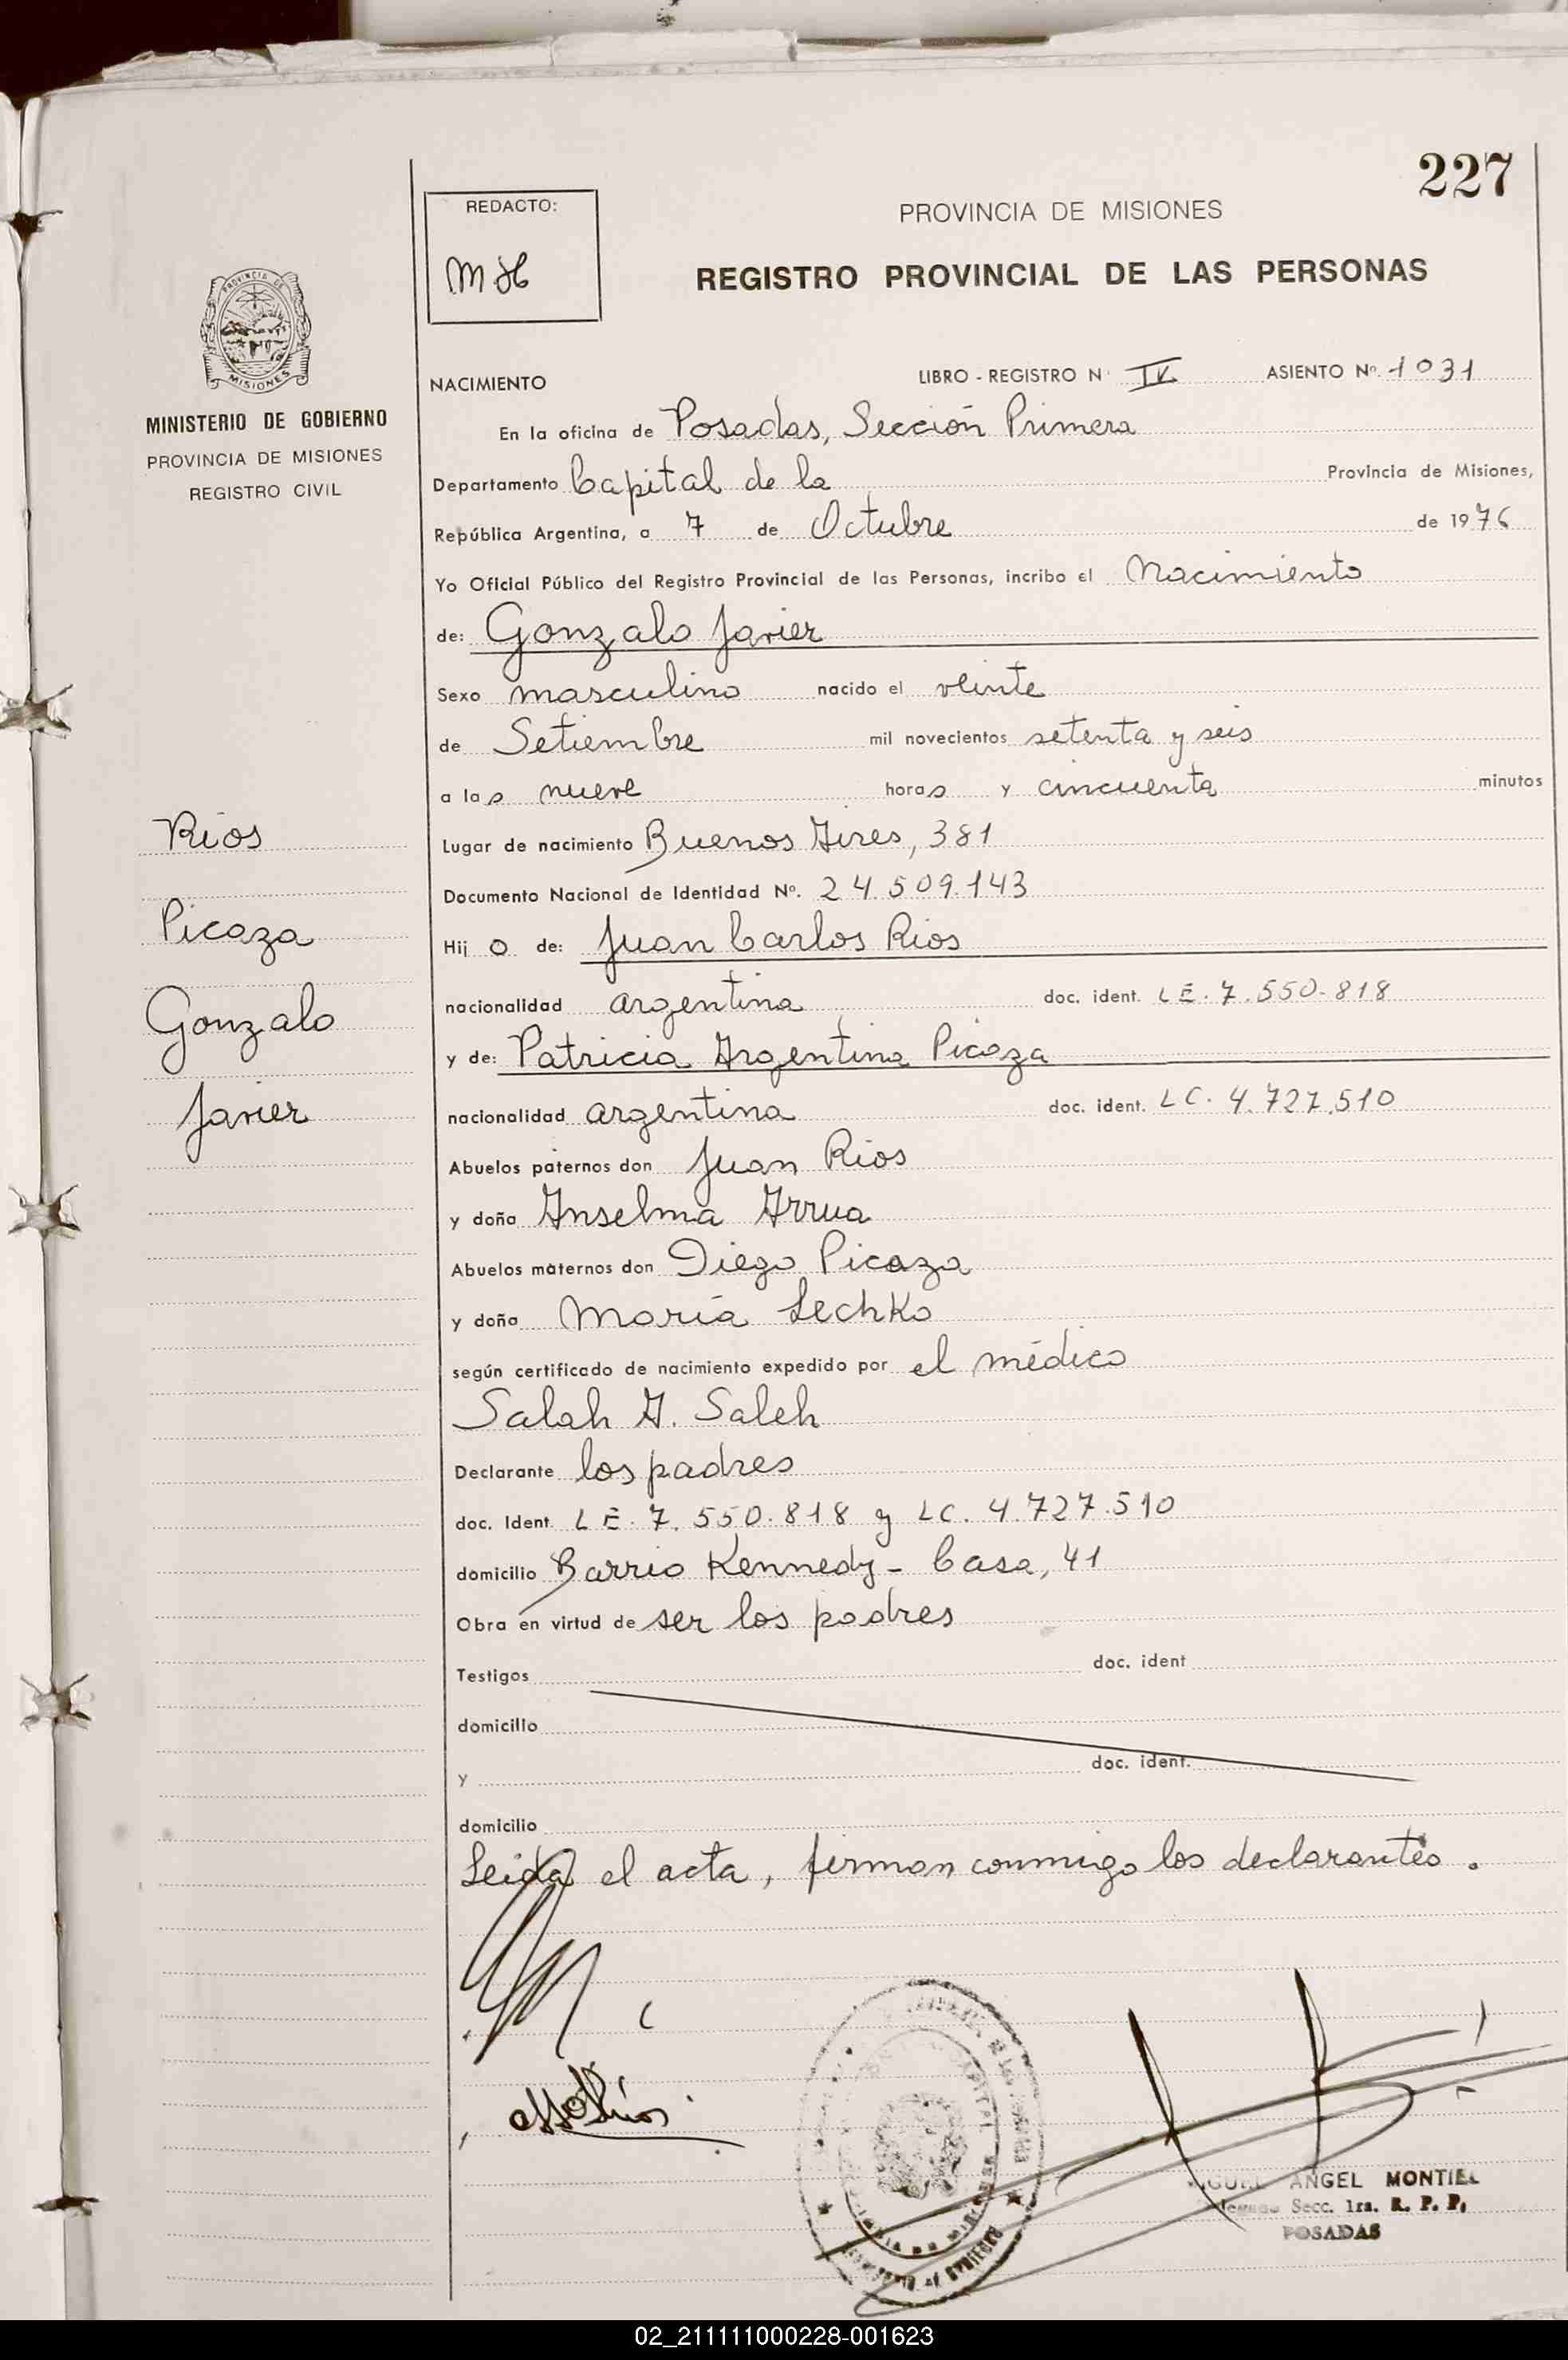 227
REDACTO:
PROVINCIA DE MISIONES
MH
REGISTRO PROVINCIAL DE LAS PERSONAS
PROVINCIA DE
MISIONES
MINISTERIO DE GOBIERNO
PROVINCIA DE MISIONES
REGISTRO CIVIL
NACIMIENTO LIBRO - REGISTRO N° IV ASIENTO Nº. 1031
En la oficina de Posadas, Sección Primera
Departamento Capital de la Provincia de Misiones,
República Argentina, a 7 de Octubre de 1976
Yo Oficial Público del Registro Provincial de las Personas, incribo el Nacimiento
de: Gonzalo Javier
Sexo masculino nacido el veinte
de Setiembre mil novecientos setenta y seis
a las nueve horas y cincuenta minutos
Lugar de nacimiento Buenos Aires, 381
Documento Nacional de Identidad Nº. 24.509.143
Hij o de: Juan Carlos Rios
nacionalidad argentina doc. ident. LE. 7.550.818
y de: Patricia Argentina Picaza
nacionalidad argentina doc. ident. LC. 4.727.510
Abuelos paternos don Juan Rios
y doña Anselma Arrua
Abuelos maternos don Diego Picaza
y doña María Lechko
según certificado de nacimiento expedido por el médico
Salah A. Saleh
Declarante los padres
doc. Ident. LE. 7.550.818 y LC. 4.727.510
domicilio Barrio Kennedy - Casa, 41
Obra en virtud de ser los padres
Testigos doc. ident
domicilio
y doc. ident.
domicilio
Leida el acta, firman conmigo los declarantes.
Rios
Picaza
Gonzalo
Javier
ANGEL MONTIEL
Secc. 1ra. R. P. P.
POSADAS
02_211111000228-001623